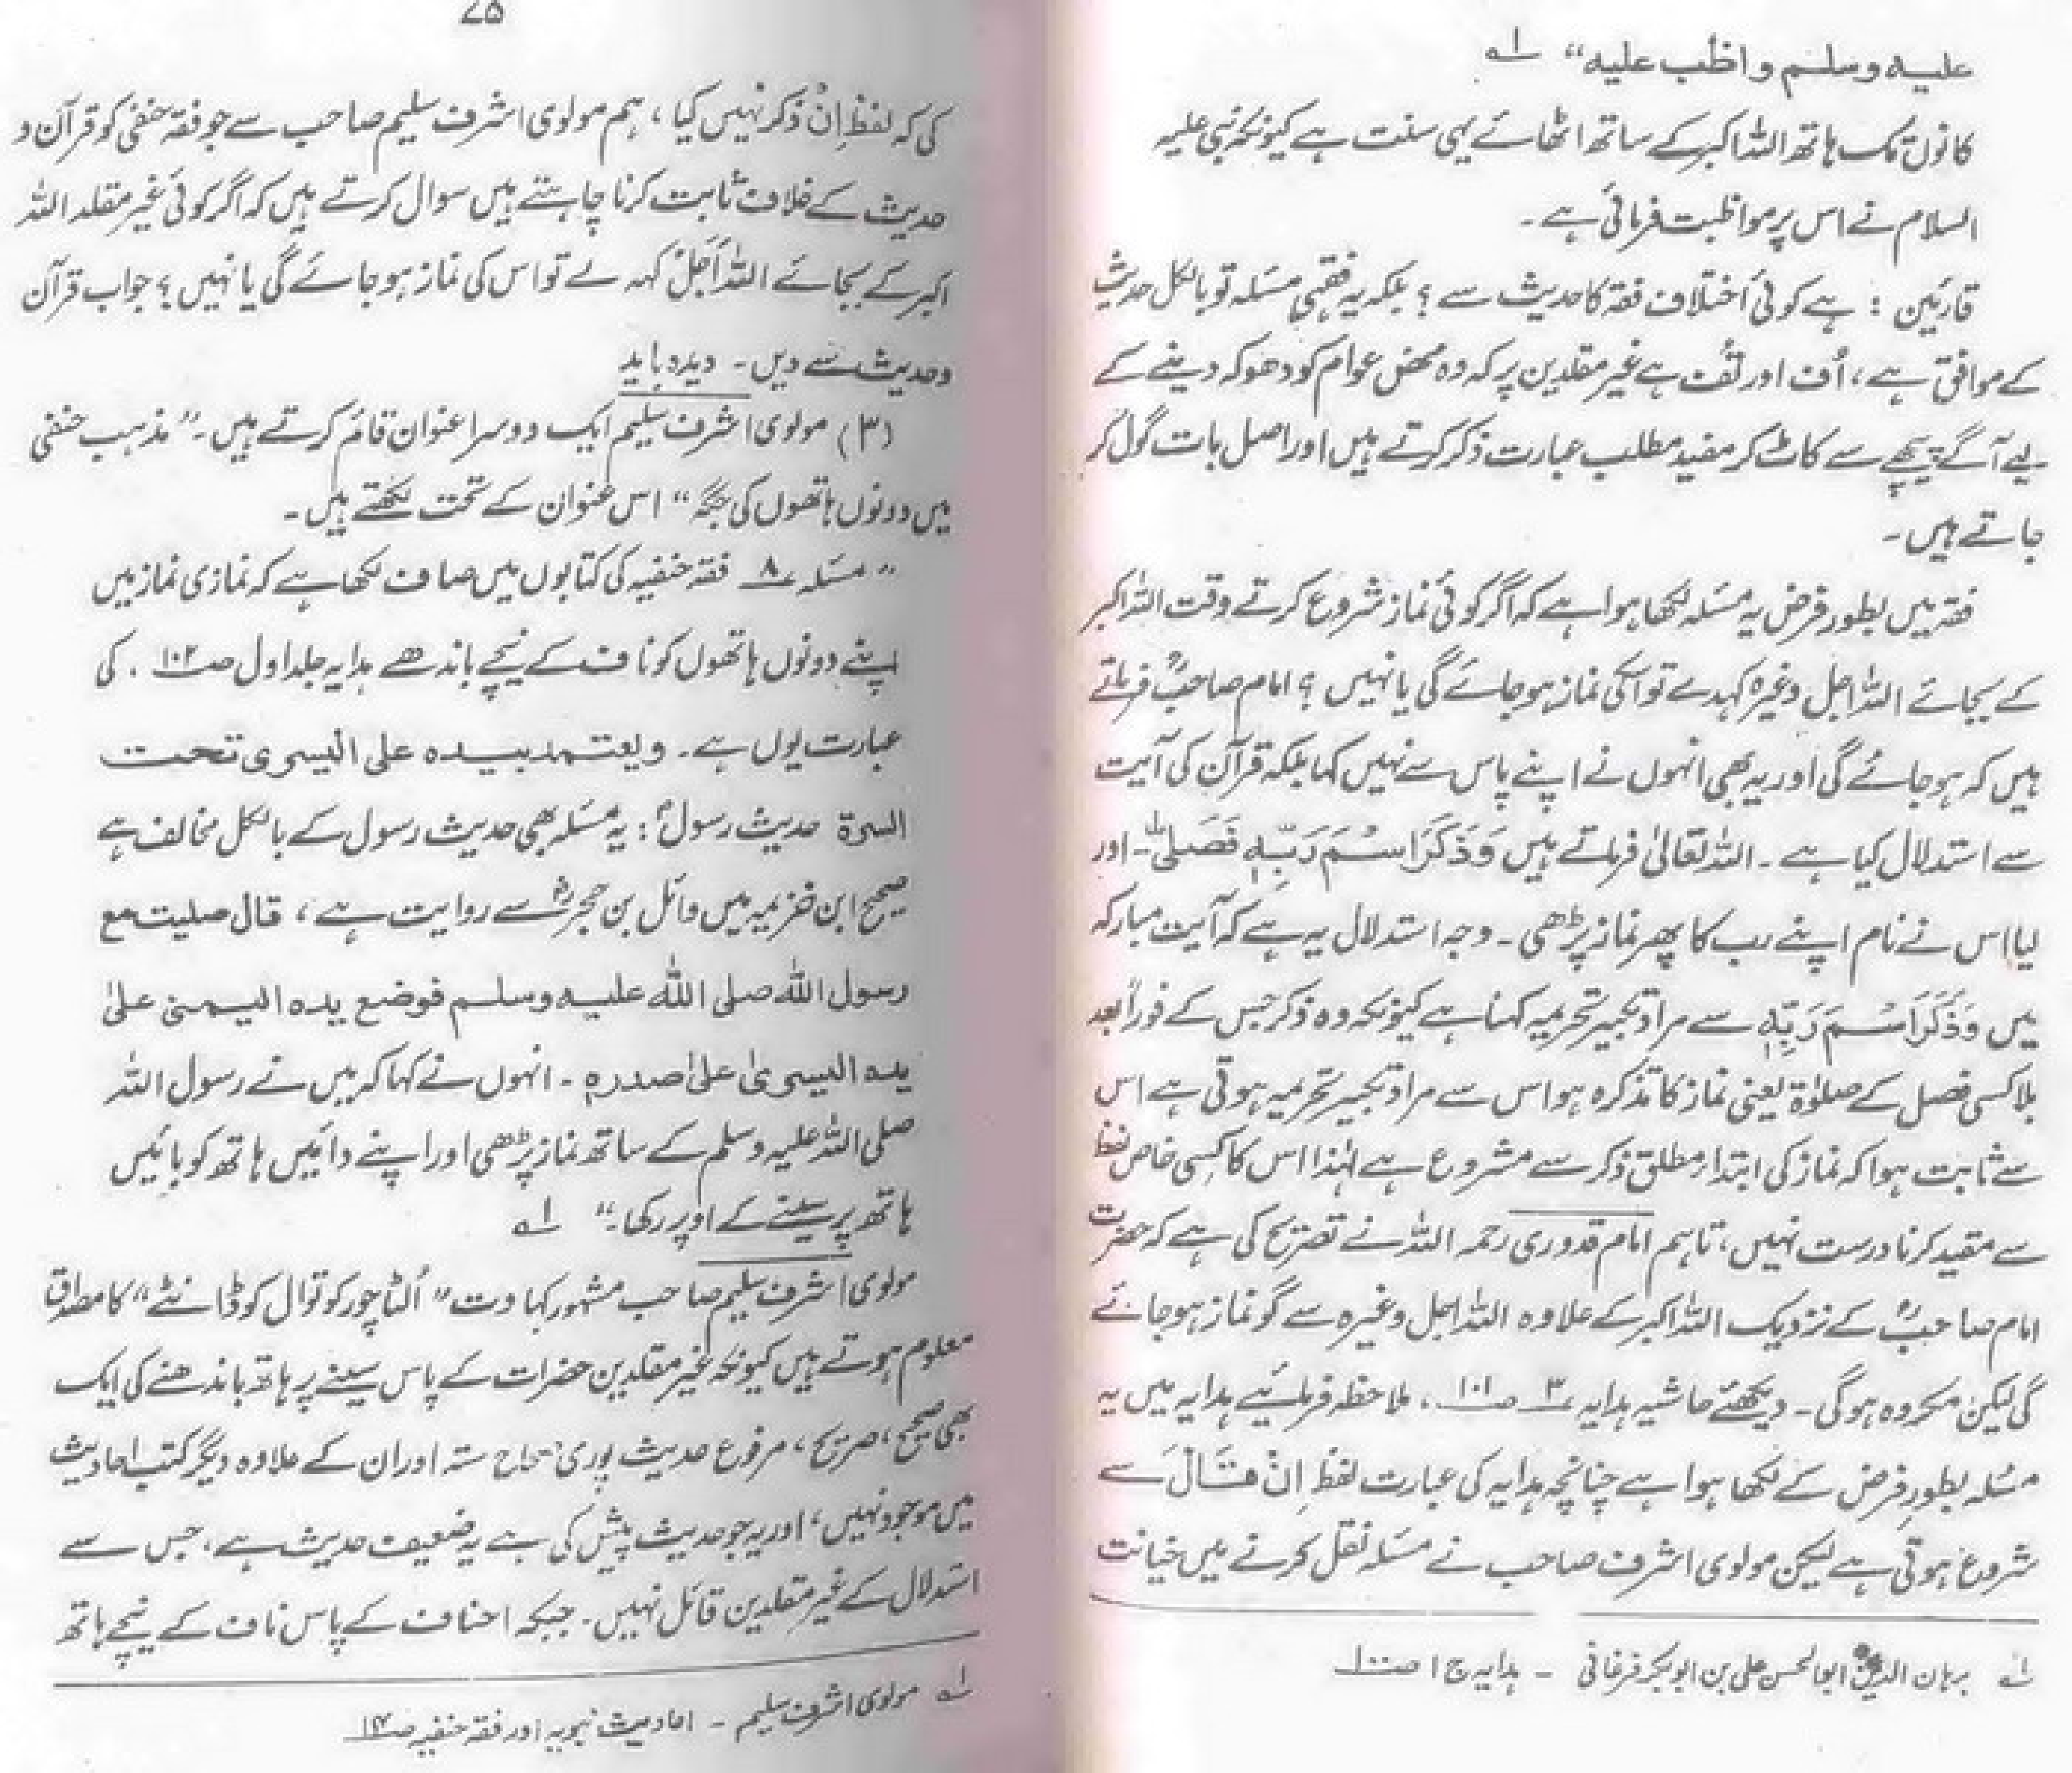 علیه وسلم واظب علیه“ لہ
کانوں تک ہاتھ اللہ اکبر کے ساتھ اٹھائے یہی سنت ہے کیونکہ نبی علیہ
السلام نے اس پر مواظبت فرمائی ہے۔
قارئین : ہے کوئی اختلاف فقہ کا حدیث سے ؟ بلکہ یہ فقہی مسئلہ تو بالکل حدیث
کے موافق ہے، اُف اور تُف ہے غیر مقلدین پر کہ وہ محض عوام کو دھوکہ دینے کے
لیے آگے پیچھے سے کاٹ کر مفید مطلب عبارت ذکر کرتے ہیں اور اصل بات گول کر
جاتے ہیں۔
فقہ میں بطور فرض یہ مسئلہ لکھا ہوا ہے کہ اگر کوئی نماز شروع کرتے وقت اللہ اکبر
کے بجائے اللہ اجل وغیرہ کہدے تو اسکی نماز ہو جائے گی یا نہیں ؟ امام صاحبؒ فرماتے
ہیں کہ ہو جائے گی اور یہ بھی انہوں نے اپنے پاس سے نہیں کہا بلکہ قرآن کی آیت
سے استدلال کیا ہے۔ اللہ تعالیٰ فرماتے ہیں وَذَكَرَ اسْمَ رَبِّهٖ فَصَلّٰی۔ اور
لیا اس نے نام اپنے رب کا پھر نماز پڑھی۔ وجہ استدلال یہ ہے کہ آیت مبارکہ
میں وَذَكَرَ اسْمَ رَبِّهٖ سے مراد تکبیر تحریمہ کہنا ہے کیونکہ وہ ذکر جس کے فوراً بعد
بلا کسی فصل کے صلوٰۃ یعنی نماز کا تذکرہ ہو اس سے مراد تکبیر تحریمہ ہوتی ہے اس
سے ثابت ہوا کہ نماز کی ابتدا مطلق ذکر سے مشروع ہے لہٰذا اس کا کسی خاص لفظ
سے مقید کرنا درست نہیں، تاہم امام قدوری رحمہ اللہ نے تصریح کی ہے کہ حضرت
امام صاحبؒ کے نزدیک اللہ اکبر کے علاوہ اللہ اجل وغیرہ سے گو نماز ہو جائے
گی لیکن مکروہ ہو گی۔ دیکھئے حاشیہ ہدایہ ۳ صـ۱۰۱، ملاحظہ فرمائیے ہدایہ میں یہ
مسئلہ بطورِ فرض کے لکھا ہوا ہے چنانچہ ہدایہ کی عبارت لفظِ اِنْ قَالَ سے
شروع ہوتی ہے لیکن مولوی اشرف صاحب نے مسئلہ نقل کرنے میں خیانت
لہ برہان الدین ابوالحسن علی بن ابو بکر فرغانی ۔ ہدایہ ج ۱ صـ۱۰۰
۷۵
کی کہ لفظِ اِنْ ذکر نہیں کیا، ہم مولوی اشرف سلیم صاحب سے جو فقہ حنفی کو قرآن و
حدیث کے خلاف ثابت کرنا چاہتے ہیں سوال کرتے ہیں کہ اگر کوئی غیر مقلد اللہ
اکبر کے بجائے اللہ اَجَلْ کہہ لے تو اس کی نماز ہو جائے گی یا نہیں ؟ جواب قرآن
و حدیث سے دیں۔ دیدہ باید
(۳) مولوی اشرف سلیم ایک دوسرا عنوان قائم کرتے ہیں۔ ”مذہب حنفی
میں دونوں ہاتھوں کی جگہ“ اس عنوان کے تحت لکھتے ہیں۔
” مسئلہ ۸ فقہ حنفیہ کی کتابوں میں صاف لکھا ہے کہ نمازی نماز میں
اپنے دونوں ہاتھوں کو ناف کے نیچے باندھے ہدایہ جلد اول صـ۱۰۲ . کی
عبارت یوں ہے۔ ویعتمد بیده علی الیسری تحت
السرة حدیث رسولؐ : یہ مسئلہ بھی حدیث رسول کے بالکل مخالف ہے
صحیح ابن خزیمہ میں وائل بن حجرؓ سے روایت ہے، قال صلیت مع
رسول الله صلی الله علیه وسلم فوضع یده الیمنی علیٰ
یده الیسریٰ علیٰ صدره ۔ انہوں نے کہا کہ میں نے رسول اللہ
صلی اللہ علیہ وسلم کے ساتھ نماز پڑھی اور اپنے دائیں ہاتھ کو بائیں
ہاتھ پر سینے کے اوپر رکھی۔“ لہ
مولوی اشرف سلیم صاحب مشہور کہاوت ”اُلٹا چور کوتوال کو ڈانٹے“ کا مصداق
معلوم ہوتے ہیں کیونکہ غیر مقلدین حضرات کے پاس سینے پر ہاتھ باندھنے کی ایک
بھی صحیح، صریح، مرفوع حدیث پوری صحاح ستہ اور ان کے علاوہ دیگر کتب احادیث
میں موجود نہیں، اور یہ جو حدیث پیش کی ہے یہ ضعیف حدیث ہے، جس سے
استدلال کے غیر مقلدین قائل نہیں۔ جبکہ احناف کے پاس ناف کے نیچے ہاتھ
لہ مولوی اشرف سلیم ۔ احادیث نبویہ اور فقہ حنفیہ